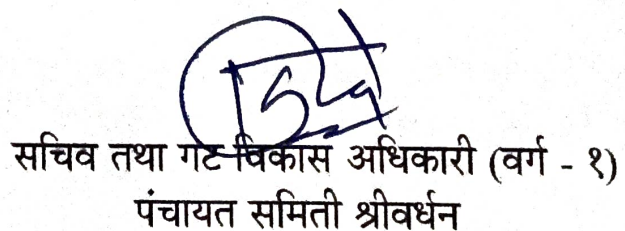 सचिव तथा गट विकास अधिकारी (वर्ग - १)
पंचायत समिती श्रीवर्धन